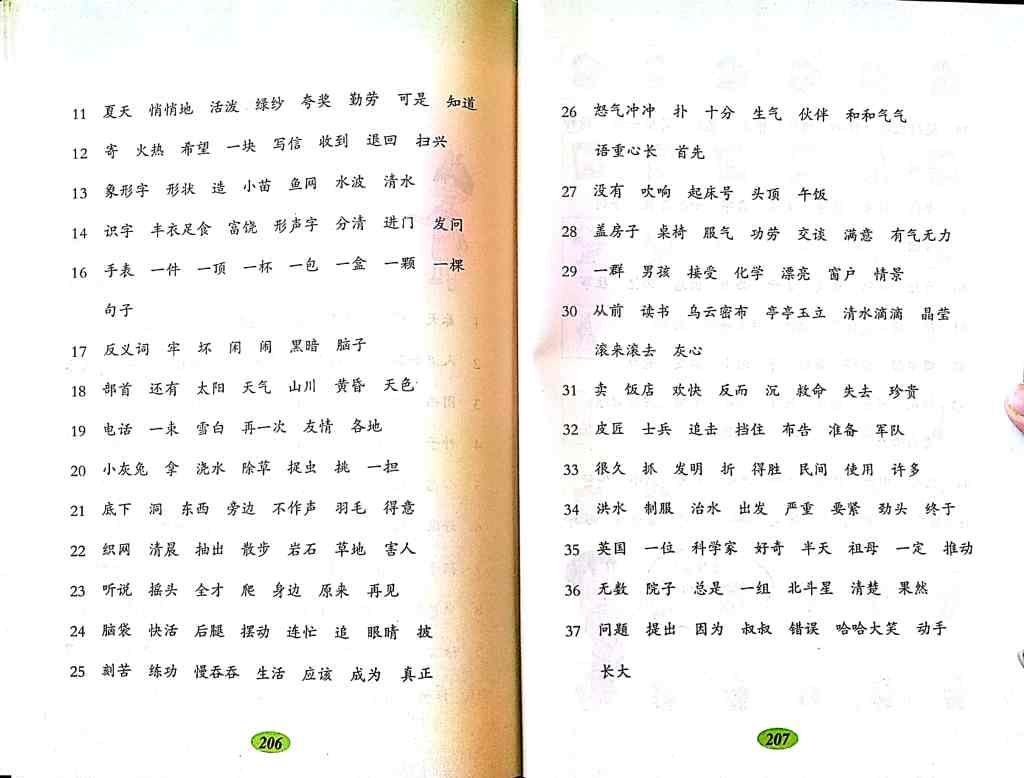 11 夏天 悄悄地 活泼 绿纱 夸奖 勤劳 可是 知道
12 寄 火热 希望 一块 写信 收到 退回 扫兴
13 象形字 形状 造 小苗 鱼网 水波 清水
14 识字 丰衣足食 富饶 形声字 分清 进门 发问
16 手表 一件 一顶 一杯 一包 一盒 一颗 一棵
句子
17 反义词 牢 坏 闲 闹 黑暗 脑子
18 部首 还有 太阳 天气 山川 黄昏 天色
19 电话 一束 雪白 再一次 友情 各地
20 小灰兔 拿 浇水 除草 捉虫 挑 一担
21 底下 洞 东西 旁边 不作声 羽毛 得意
22 织网 清晨 抽出 散步 岩石 草地 害人
23 听说 摇头 全才 爬 身边 原来 再见
24 脑袋 快活 后腿 摆动 连忙 追 眼睛 披
25 刻苦 练功 慢吞吞 生活 应该 成为 真正
206
26 怒气冲冲 扑 十分 生气 伙伴 和和气气
语重心长 首先
27 没有 吹响 起床号 头顶 午饭
28 盖房子 桌椅 服气 功劳 交谈 满意 有气无力
29 一群 男孩 接受 化学 漂亮 窗户 情景
30 从前 读书 乌云密布 亭亭玉立 清水滴滴 晶莹
滚来滚去 灰心
31 卖 饭店 欢快 反而 沉 救命 失去 珍贵
32 皮匠 士兵 追击 挡住 布告 准备 军队
33 很久 抓 发明 折 得胜 民间 使用 许多
34 洪水 制服 治水 出发 严重 要紧 劲头 终于
35 英国 一位 科学家 好奇 半天 祖母 一定 推动
36 无数 院子 总是 一组 北斗星 清楚 果然
37 问题 提出 因为 叔叔 错误 哈哈大笑 动手
长大
207